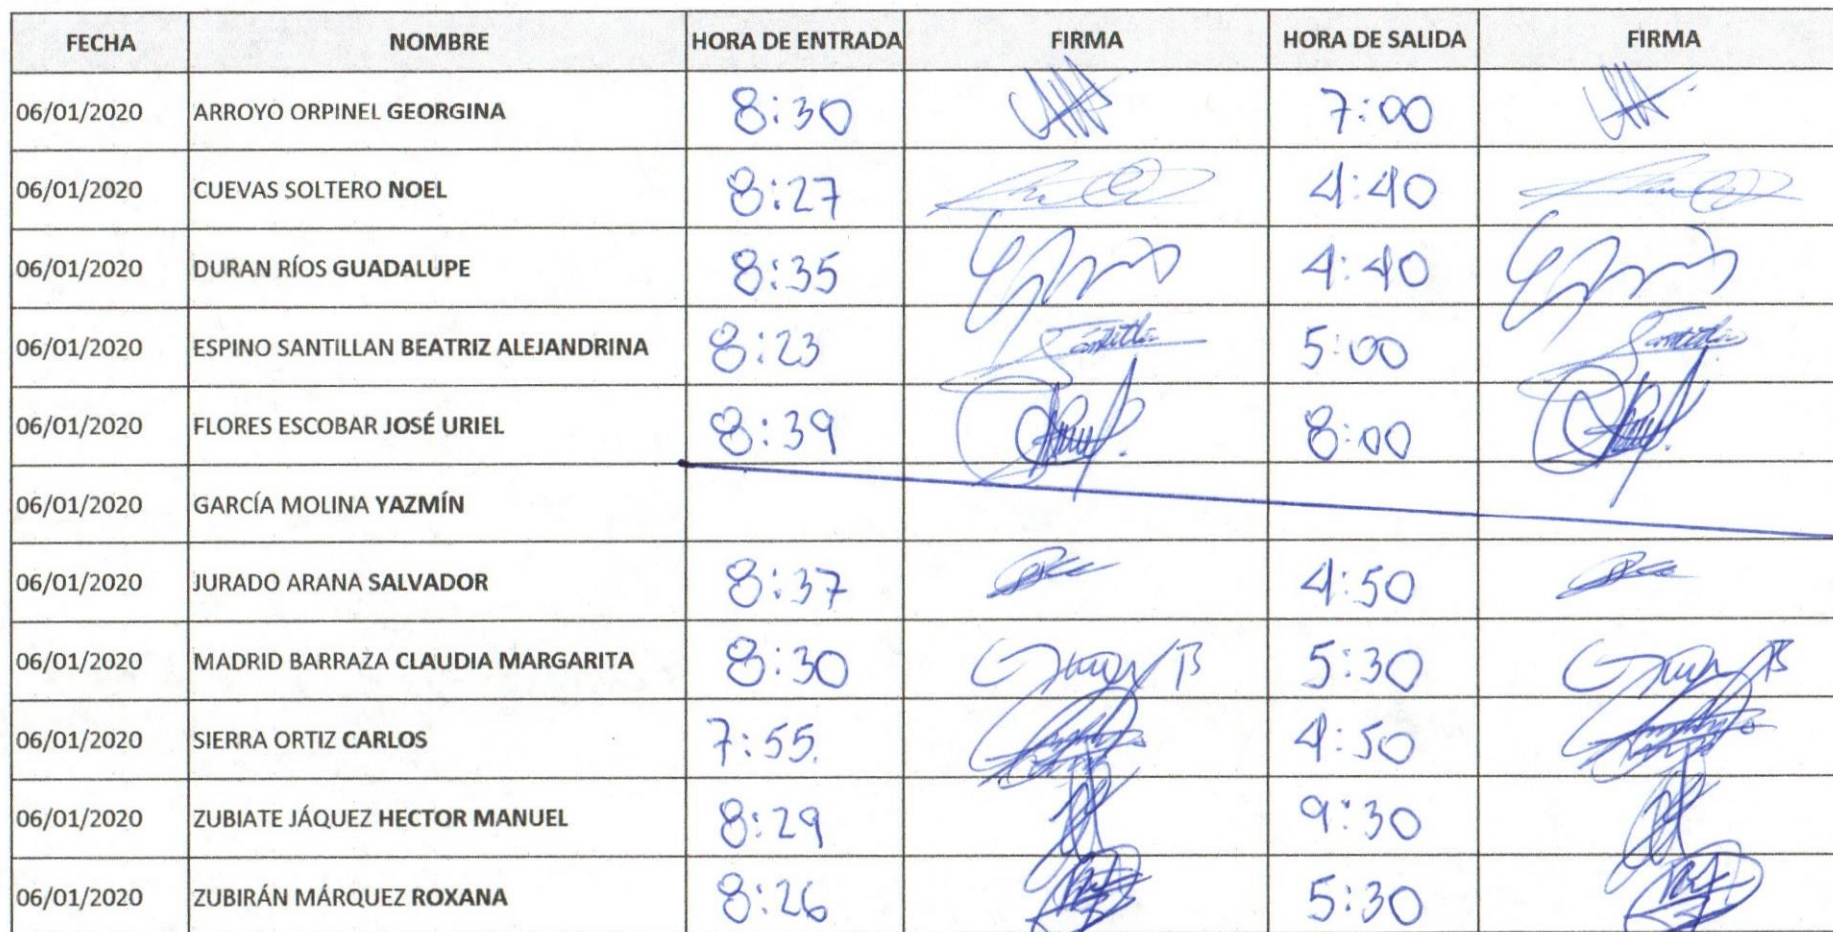 FECHA NOMBRE HORA DE ENTRADA FIRMA HORA DE SALIDA FIRMA
06/01/2020 ARROYO ORPINEL GEORGINA 8:30 7:00
06/01/2020 CUEVAS SOLTERO NOEL 8:27 4:40
06/01/2020 DURAN RÍOS GUADALUPE 8:35 4:40
06/01/2020 ESPINO SANTILLAN BEATRIZ ALEJANDRINA 8:23 5:00
06/01/2020 FLORES ESCOBAR JOSÉ URIEL 8:39 8:00
06/01/2020 GARCÍA MOLINA YAZMÍN
06/01/2020 JURADO ARANA SALVADOR 8:37 4:50
06/01/2020 MADRID BARRAZA CLAUDIA MARGARITA 8:30 5:30
06/01/2020 SIERRA ORTIZ CARLOS 7:55. 4:50
06/01/2020 ZUBIATE JÁQUEZ HECTOR MANUEL 8:29 9:30
06/01/2020 ZUBIRÁN MÁRQUEZ ROXANA 8:26 5:30